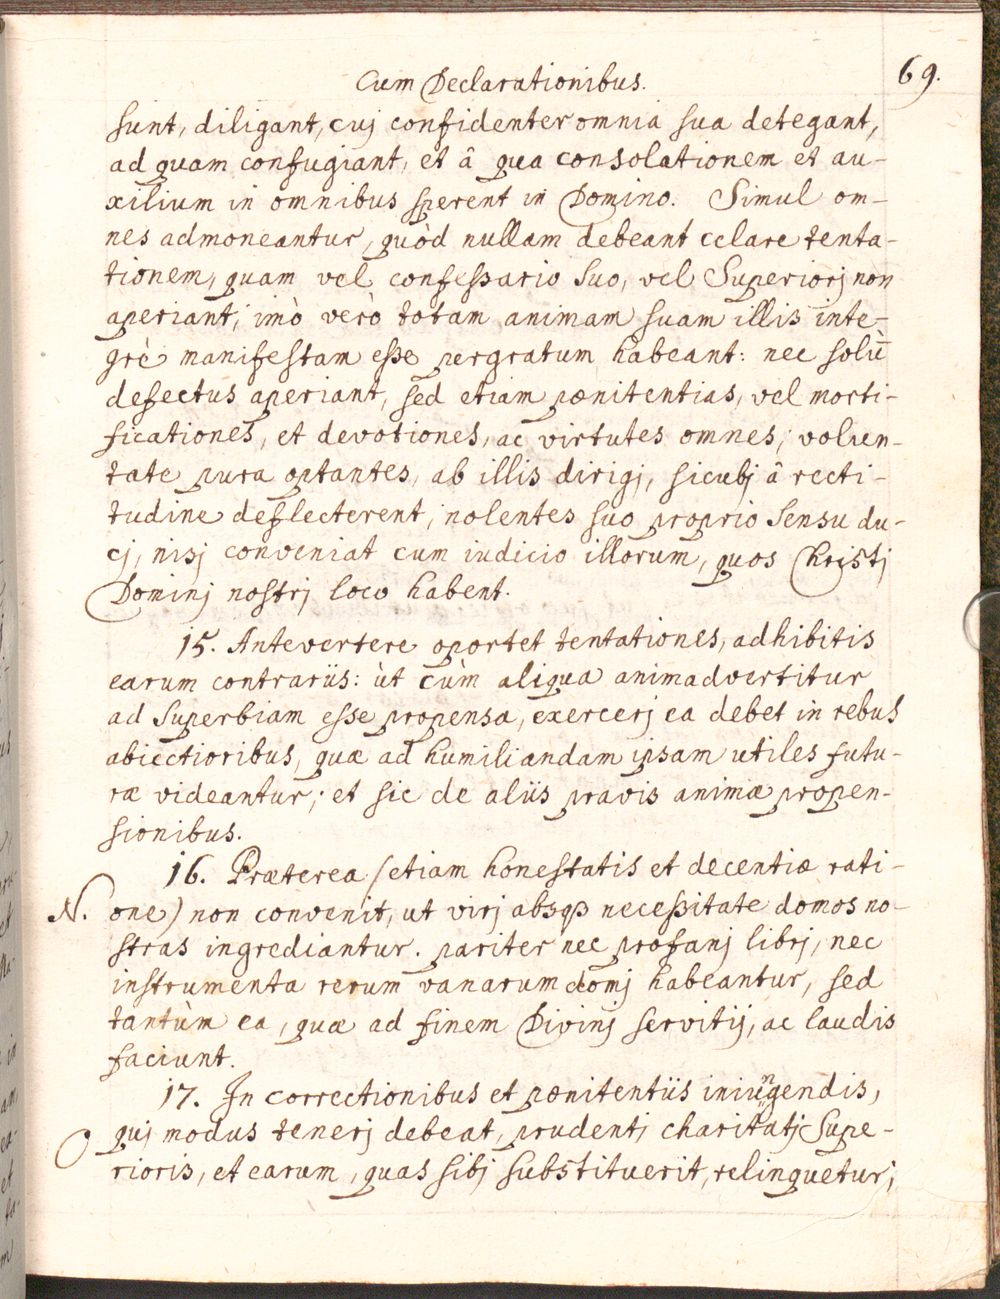 Cum Declarationibus.
69.
sunt, diligant, cuj confidenter omnia sua detegant,
ad quam confugiant, et â qua consolationem et au-
xilium in omnibus sperent in Domino. Simul om-
nes admoneantur, quòd nullam debeant celare tenta-
tionem, quam vel confeßario suo, vel Superiorj non
aperiant; imò verò totam animam suam illis inte-
grè manifestam eße pergratum habeant: nec solũ
defectus aperiant, sed etiam pœnitentias, vel morti-
ficationes, et devotiones, ac virtutes omnes; volun-
tate pura optantes, ab illis dirigj, sicubj â recti-
tudine deflecterent, nolentes suo proprio sensu du-
cj, nisj conveniat cum iudicio illorum, quos Christj
Dominj nostrj loco habent.
15. Antevertere oportet tentationes, adhibitis
earum contrariis: ùt cùm aliqua animadvertitur
ad Superbiam esse propensa, exercerj ea debet in rebus
abiectioribus, quæ ad humiliandam ipsam utiles futu-
ræ videantur; et sic de aliis pravis animæ propen-
sionibus.
16. Præterea (etiam honestatis et decentiæ rati-
N. one) non convenit, ut virj absqꝫ neceßitate domos no-
stras ingrediantur. pariter nec profanj librj, nec
instrumenta rerum vanarum domj habeantur, sed
tantùm ea, quæ ad finem Divinj servitij, ac laudis
faciunt.
17. In correctionibus et pœnitentiis iniungendis,
O quj modus tenerj debeat, prudentj charitatj Supe-
rioris, et earum, quas sibj substituerit, relinquetur;